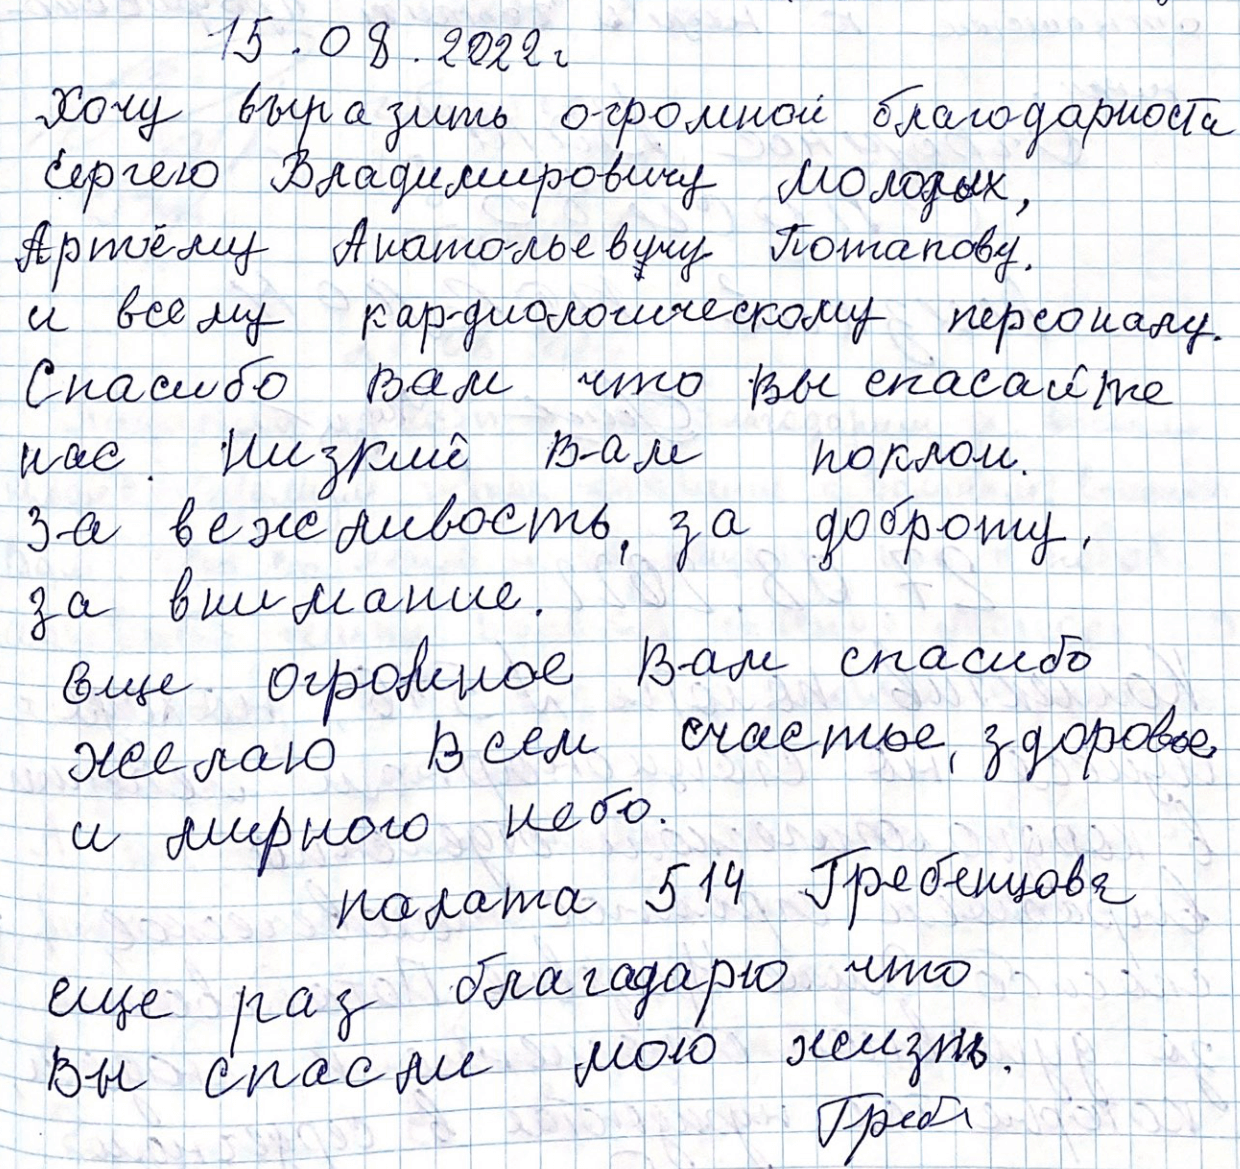 15.08.2022г
Хочу выразить огромной благодарности
Сергею Владимировичу Молодых,
Артёму Анатольевичу Потапову.
и всему кардиологическому персоналу.
Спасибо Вам что Вы спасайте
нас. Низкий Вам поклон.
за вежливость, за доброту,
за внимание.
еще огромное Вам спасибо
желаю Всем счастье, здоровье,
и мирного небо.
палата 514 Гребенцова
еще раз благадарю что
Вы спасли мою жизнь.